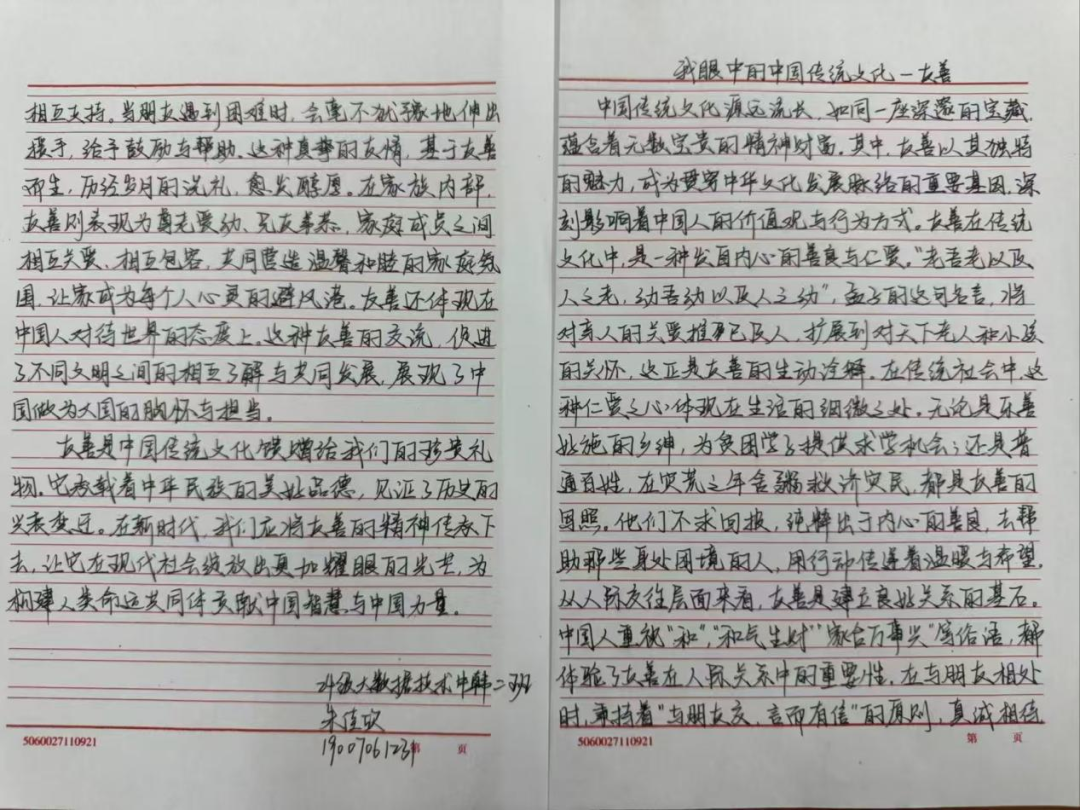 我眼中的中国传统文化—友善
中国传统文化源远流长，如同一座深邃的宝藏，
蕴含着无数宝贵的精神财富。其中，友善以其独特
的魅力，成为贯穿中华文化发展脉络的重要基因，深
刻影响着中国人的价值观与行为方式。友善在传统
文化中，是一种发自内心的善良与仁爱。"老吾老以及
人之老，幼吾幼以及人之幼"，孟子的这句名言，将
对亲人的关爱推己及人，扩展到对天下老人和小孩
的关怀，这正是友善的生动诠释。在传统社会中，这
种仁爱之心体现在生活的细微之处。无论是乐善
好施的乡绅，为贫困学子提供求学机会；还是普
通百姓，在灾荒之年舍粥救济灾民，都是友善的
写照。他们不求回报，纯粹出于内心的善良，去帮
助那些身处困境的人，用行动传递着温暖与希望。
从人际交往层面来看，友善是建立良好关系的基石。
中国人重视"和"，"和气生财""家合万事兴"等俗语，都
体验了友善在人际关系中的重要性。在与朋友相处
时，秉持着"与朋友交，言而有信"的原则，真诚相待
5060027110921
第 页
相互支持。当朋友遇到困难时，会毫不犹豫地伸出
援手，给予鼓励与帮助。这种真挚的友情，基于友善
而生，历经岁月的洗礼，愈发醇厚。在家族内部，
友善则表现为尊老爱幼、兄友弟恭，家庭成员之间
相互关爱、相互包容，共同营造温馨和睦的家庭氛
围，让家成为每个人心灵的避风港。友善还体现在
中国人对待世界的态度上。这种友善的交流，促进
了不同文明之间的相互了解与共同发展，展现了中
国做为大国的胸怀与担当。
友善是中国传统文化馈赠给我们的珍贵礼
物。它承载着中华民族的美好品德，见证了历史的
兴衰变迁。在新时代，我们应将友善的精神传承下
去，让它在现代社会绽放出更加耀眼的光芒，为
构建人类命运共同体贡献中国智慧与中国力量。
级大数据技术中韩二班
朱佳
5060027110921
第 页